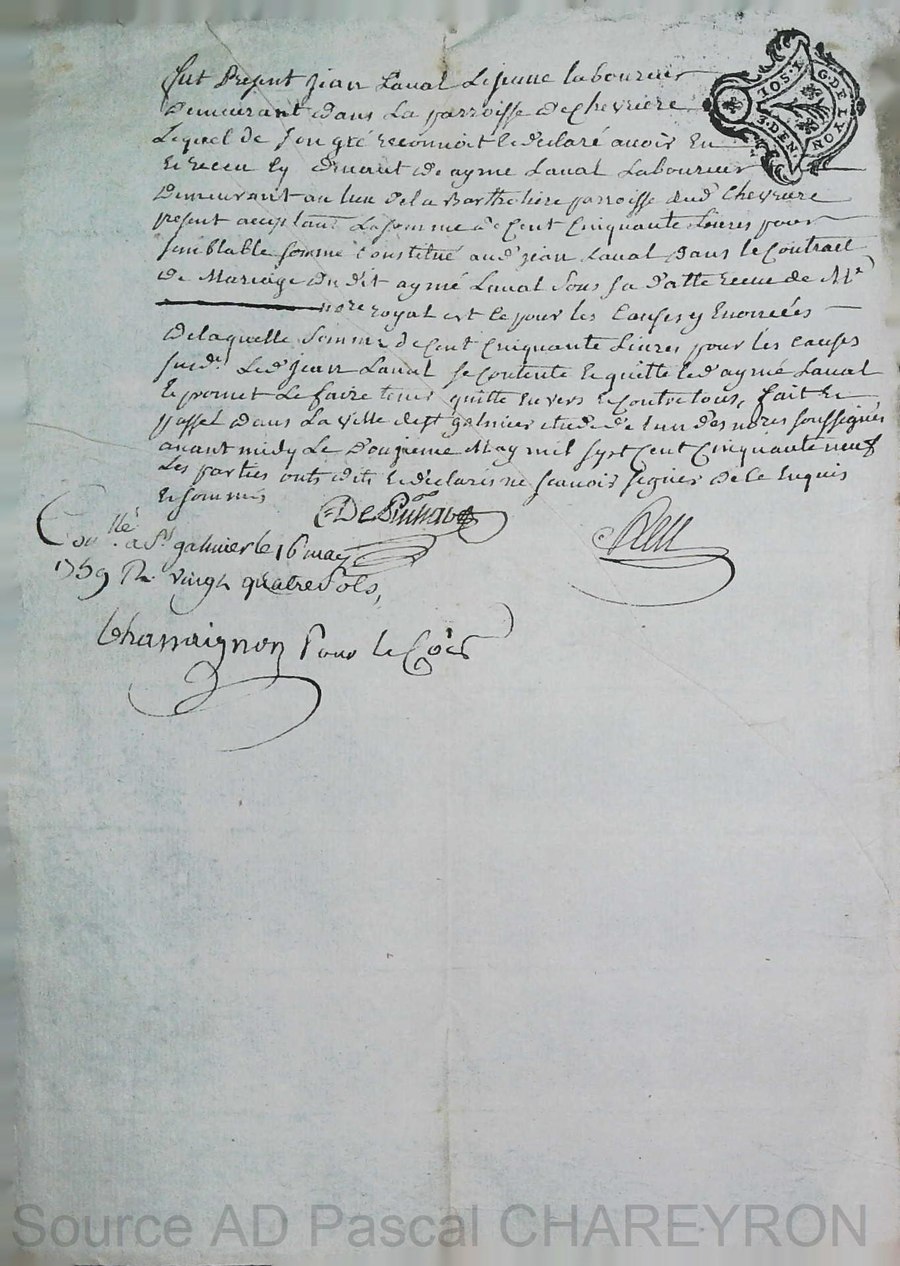 fut Present jean Laval Lejeune laboureur
demeurant dans La parroisse de Chevriere
Lequel de son gré reconnoit et declaré avoir Eu
et receu Cy devant de aymé Laval Laboureur
demeurant au lieu de la Bartholiere parroisse dud Chevriere
present acceptant La somme de Cent Cinquante Livres pour
semblable somme Constitué aud jean Laval dans le Contract
de Mariage du dit aymé Laval sous sa datte receu de Me
nore royal et ce pour les Causes y Enoncées
de laquelle somme de Cent Cinquante Livres pour les causes
susd. Led jean Laval se Contente et quitte led aymé Laval
et promet Le faire tenir quitte Envers et Contre tous, fait et
passé dans La ville de st galmier etude de l'un des nores soussignés
avant midy Le douzieme May mil sept Cent Cinquante neuf
Les parties onts dits et declarés ne scavoir signer de ce Enquis
et sommés
Conllé a St galmier le 16 may
1759 R. vingt quatre sols,
Chassaignon Pour le Cois
10 SOL. 3. DEN.
G. DE LYON
Source AD Pascal CHAREYRON